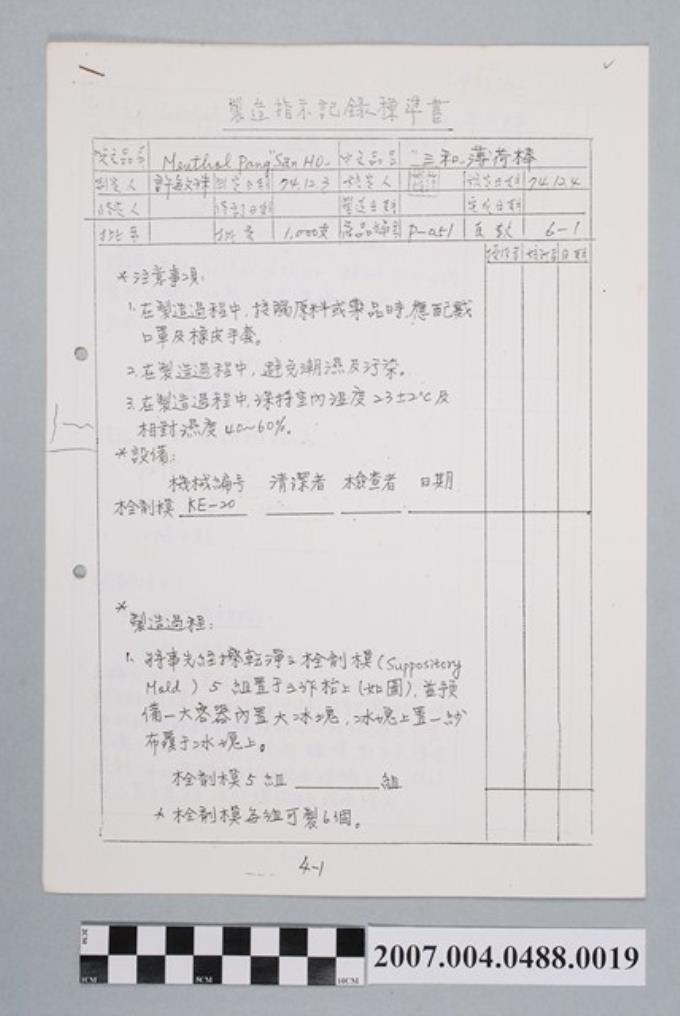 製造指示記錄標準書
英文品名 Menthol Pang "San Ho" 中文品名 "三和"薄荷棒
制定人 制定日期 74.12.3 核定人 核定日期 74.12.4
修定人 修訂日期 製造日期 完成日期
批号 批量 1,000支 P-051 頁數 6-1
日期
*注意事項:
1.在製造過程中,接觸原料或藥品時,應配戴
口罩及橡皮手套。
2.在製造過程中,避免潮濕及汙染。
3.在製造過程中,保持室內溫度23±2℃及
相對濕度40~60%。
*設備:
機械編号 清潔者 檢查者 日期
栓劑模 KE-20
*
製造過程:
1. 將事先經擦乾淨之栓劑模(Suppository
Mold)5組置于工作枱上(如圖),並預
備一大容器內置大冰塊,冰塊上置一紗
布覆于冰塊上。
栓劑模5組 組
* 栓劑模每組可製6個。
4-1
2CM
1CM 5CM 10CM
2007.004.0488.0019